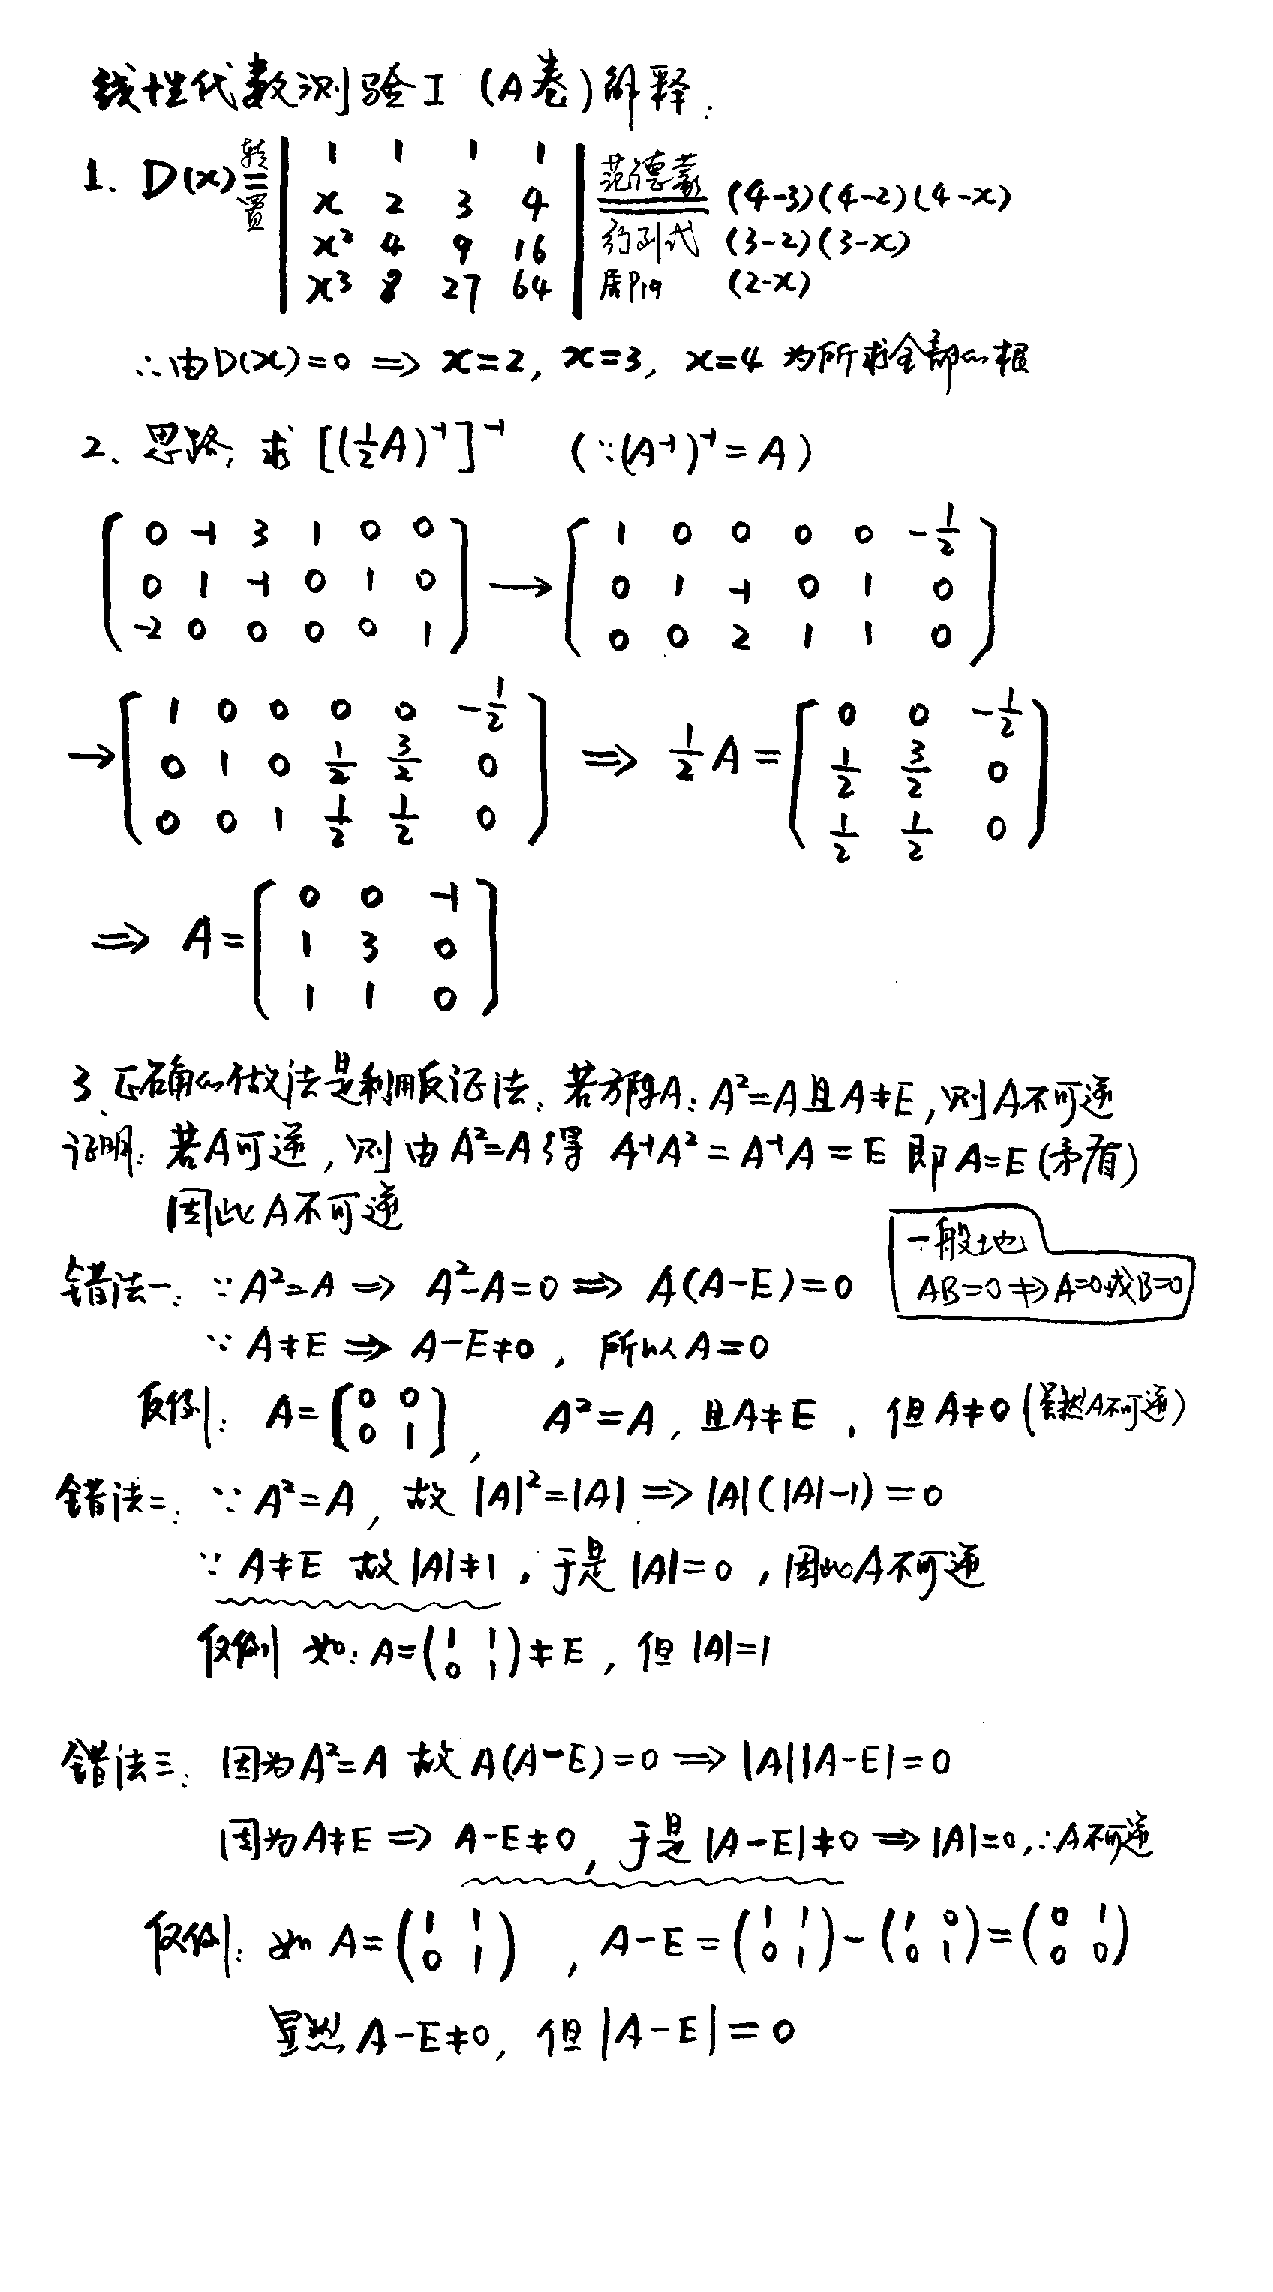 线性代数测验I (A卷) 解释:
1. D(x) 转置= | 1 1 1 1 | 范德蒙 (4-3)(4-2)(4-x)
x 2 3 4 行列式 (3-2)(3-x)
x² 4 9 16 (2-x)
x³ 8 27 64
∴由D(x)=0 ⇒ x=2, x=3, x=4 为所求全部的根
2. 思路: 求 [(½A)⁻¹]⁻¹ (∵(A⁻¹)⁻¹=A)
( 0 -1 3 1 0 0 ) → ( 1 0 0 0 0 -½ )
( 0 1 -1 0 1 0 ) ( 0 1 -1 0 1 0 )
( -2 0 0 0 0 1 ) ( 0 0 2 1 1 0 )
→ ( 1 0 0 0 0 -1/2 ) ⇒ ½A = ( 0 0 -1/2 )
( 0 1 0 1/2 3/2 0 ) ( 1/2 3/2 0 )
( 0 0 1 1/2 1/2 0 ) ( 1/2 1/2 0 )
⇒ A = ( 0 0 -1 )
( 1 3 0 )
( 1 1 0 )
3. 正确的做法是利用反证法: 若方阵A: A²=A且A≠E, 则A不可逆
证明: 若A可逆, 则由A²=A得 A⁻¹A²=A⁻¹A=E 即A=E(矛盾)
因此A不可逆
一般地
AB=0 ⇏ A=0或B=0
错法一: ∵A²=A ⇒ A²-A=0 ⇒ A(A-E)=0
∵A≠E ⇒ A-E≠0, 所以A=0
反例: A=[0 0; 0 1], A²=A, 且A≠E, 但A≠0(虽然A不可逆)
错法二: ∵A²=A, 故|A|²=|A| ⇒ |A|(|A|-1)=0
∵A≠E 故|A|≠1, 于是|A|=0, 因此A不可逆
反例 如: A=(1 1; 0 1)≠E, 但|A|=1
错法三: 因为A²=A 故A(A-E)=0 ⇒ |A||A-E|=0
因为A≠E ⇒ A-E≠0, 于是|A-E|≠0 ⇒ |A|=0, ∴A不可逆
反例: 如 A=(1 1; 0 1), A-E=(1 1; 0 1)-(1 0; 0 1)=(0 1; 0 0)
显然A-E≠0, 但|A-E|=0